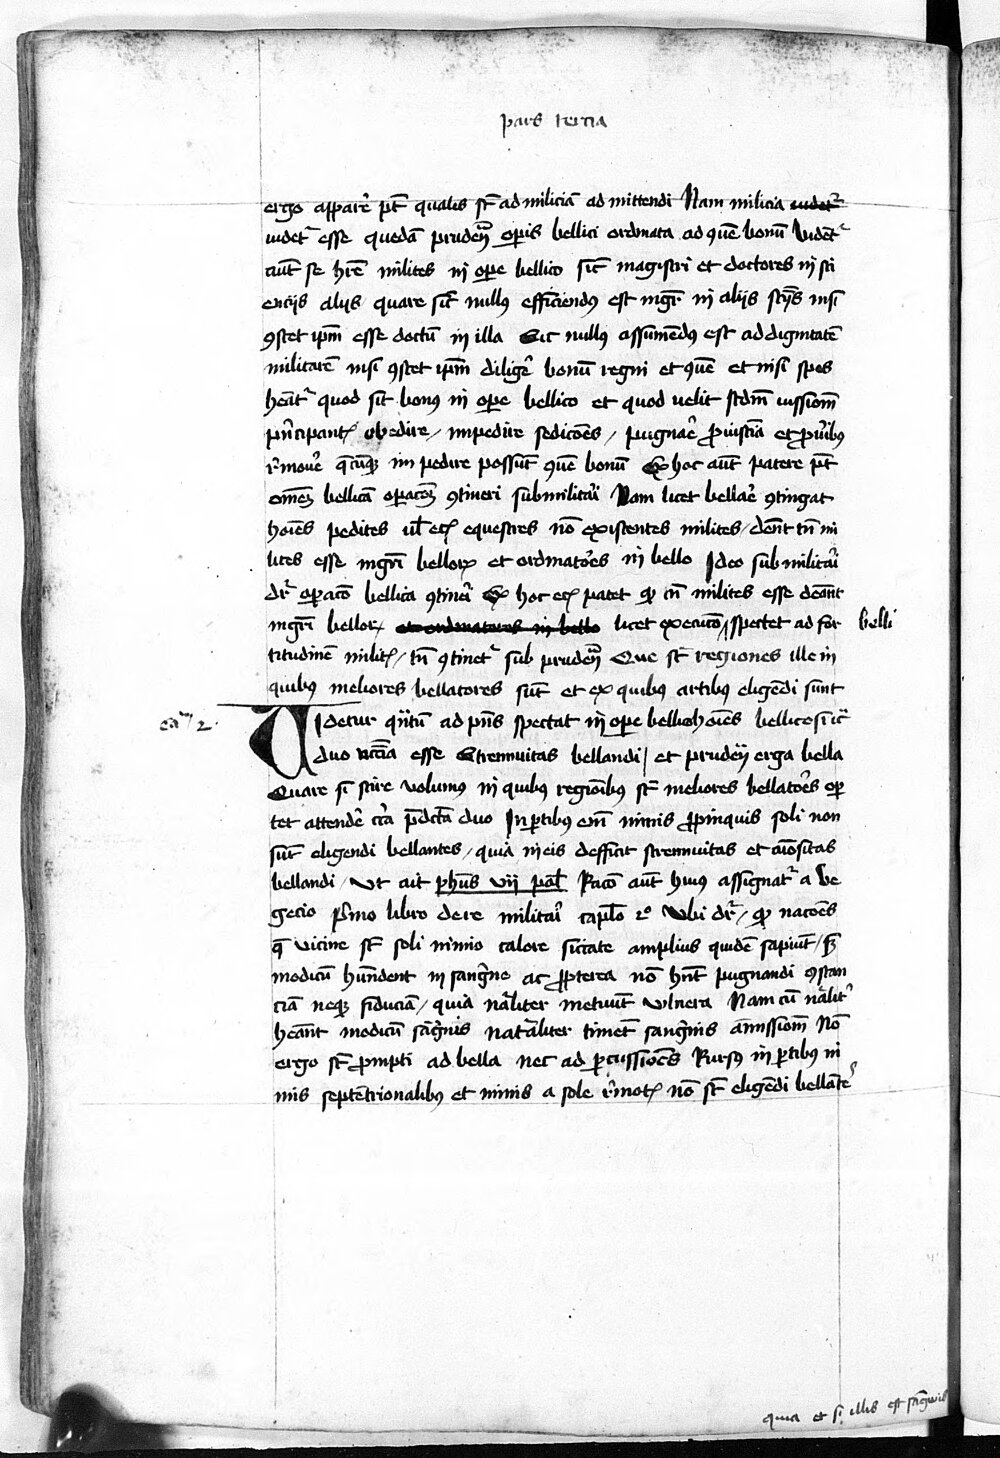 pars tercia
ergo apparē pt̄ qualis st̄ ad miliciā ad mittendi Nam milicia videtr̄
videtr̄ esse quedā pruden̄ opis bellici ordinata ad ꝯuē bonū Videntr̄
aūt se hr̄e milites in ope bellico sic̄ magistri et doctores in sci
encijs alijs quare sic̄ nullꝰ efficiendꝰ est mgr̄ in alijs scijs nisi
ꝯstet ipm̄ esse doctū in illa Sic nullꝰ assumēdꝰ est ad dignitatē
militarē nisi ꝯstet ipm̄ diligē bonū regni et ꝯuē et nisi spes
heāt' quod sit bonꝰ in ope bellico et quod velit scd̄m iussionē
pn̄cipant obedire / impedire sediciōes / pugnaē ꝓ iusticīa et ꝓ viribꝰ
r̄mouē q̄cūqꝫ im pedire possūt ꝯuē bonū Ex hoc aūt patere pt̄
om̄em bellicā opacōeꝫ ꝯtineri sub militari Nam licet bellaē ꝯtingat
hoīes pedites ul̄ ecꝫ equestres nō existentes milites / dn̄t tn̄ mi
lites esse mgr̄i belloꝝ et ordinatoēs in bello Ideo sub militari
dr̄ opacō bellica ꝯtinēi Ex hoc ecꝫ patet qꝫ cū milites esse deānt
mgr̄i belloꝝ et ordinatores in bello licet execucō spectet ad for belli
titudinē militꝫ / tn̄ ꝯtinetr̄ sub pruden̄ Que st̄ regiones ille in
quibꝰ meliores bellatores sūt et ex quibꝰ artibꝰ eligēdi sunt
ca^m 2
VIdetur qn̄tū ad pn̄s spectat in ope bellico hoīes bellicosi sic̄
duo nccīa esse Strennuitas bellandi / et pruden̄ erga bella
Quare si scire volumꝰ in quibꝰ regionībꝰ st̄ meliores bellatoēs opr
tet attendē circa p̄dcā duo In ptibꝰ em̄ nimis ꝓpinquis soli non
sūt eligendi bellantes / quia in eis defficit strennuitas et aīositas
bellandi / Vt ait phūs vij pol̄ Racō aūt huiꝰ assignatr̄ a ve
gecio pꝰmo libro de re militari caplo 2º Vbi dr̄ / qꝫ nacōes
q̄ vicine st̄ soli nimio calore siccate amplius quidē sapiūt / sꝫ
modicū hūndent in sangꝰne ac ꝓpterea nō hn̄t pugnandi ꝯstan
ciā neqꝫ fiduciā / quia nāliter metuūt vlnera Nam cū nālitꝰ
heānt modicū sāgꝰnis natāliter timēt sangꝰnis amissionē Nō
ergo st̄ ꝓmpti ad bella nec ad pcussiōes Rursꝰ in ptibꝰ ni
mis septētrionalibꝰ et nimis a sole r̄motꝫ nō st̄ eligēdi bellātes
quia et si illis est sāgwis